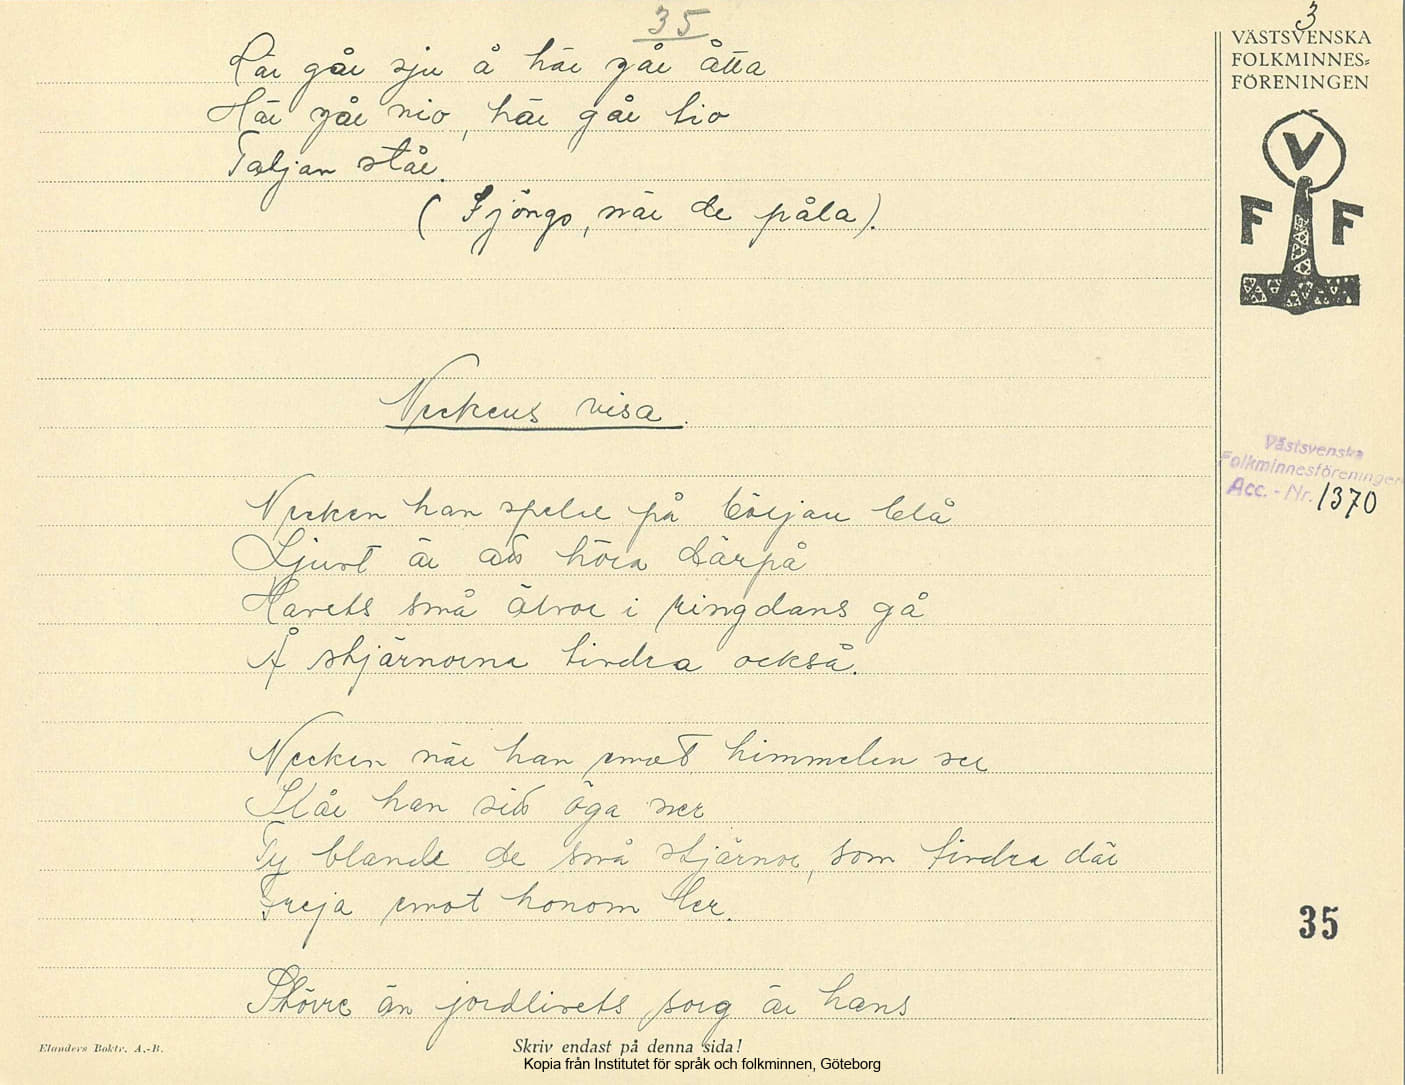 35
3
Här går sju å här går åtta
Här går nio, här går tio
Taljan står.
(Sjöngs, när de påla).
Neckens visa.
Necken han spelar på böljan blå
Ljuvt är att höra därpå
Havets små älvor i ringdans gå
Å stjärnorna tindra också.
Necken när han emot himmelen ser
Slår han sitt öga ner
Ty blande de små stjärnor, som tindra där
Freja emot honom ler.
Större än jordlivets sorg är hans
VÄSTSVENSKA
FOLKMINNES=
FÖRENINGEN
V
F F
Västsvenska
Folkminnesföreningen
Acc. - Nr. 1370
35
Elanders Boktr. A.-B.
Skriv endast på denna sida!
Kopia från Institutet för språk och folkminnen, Göteborg